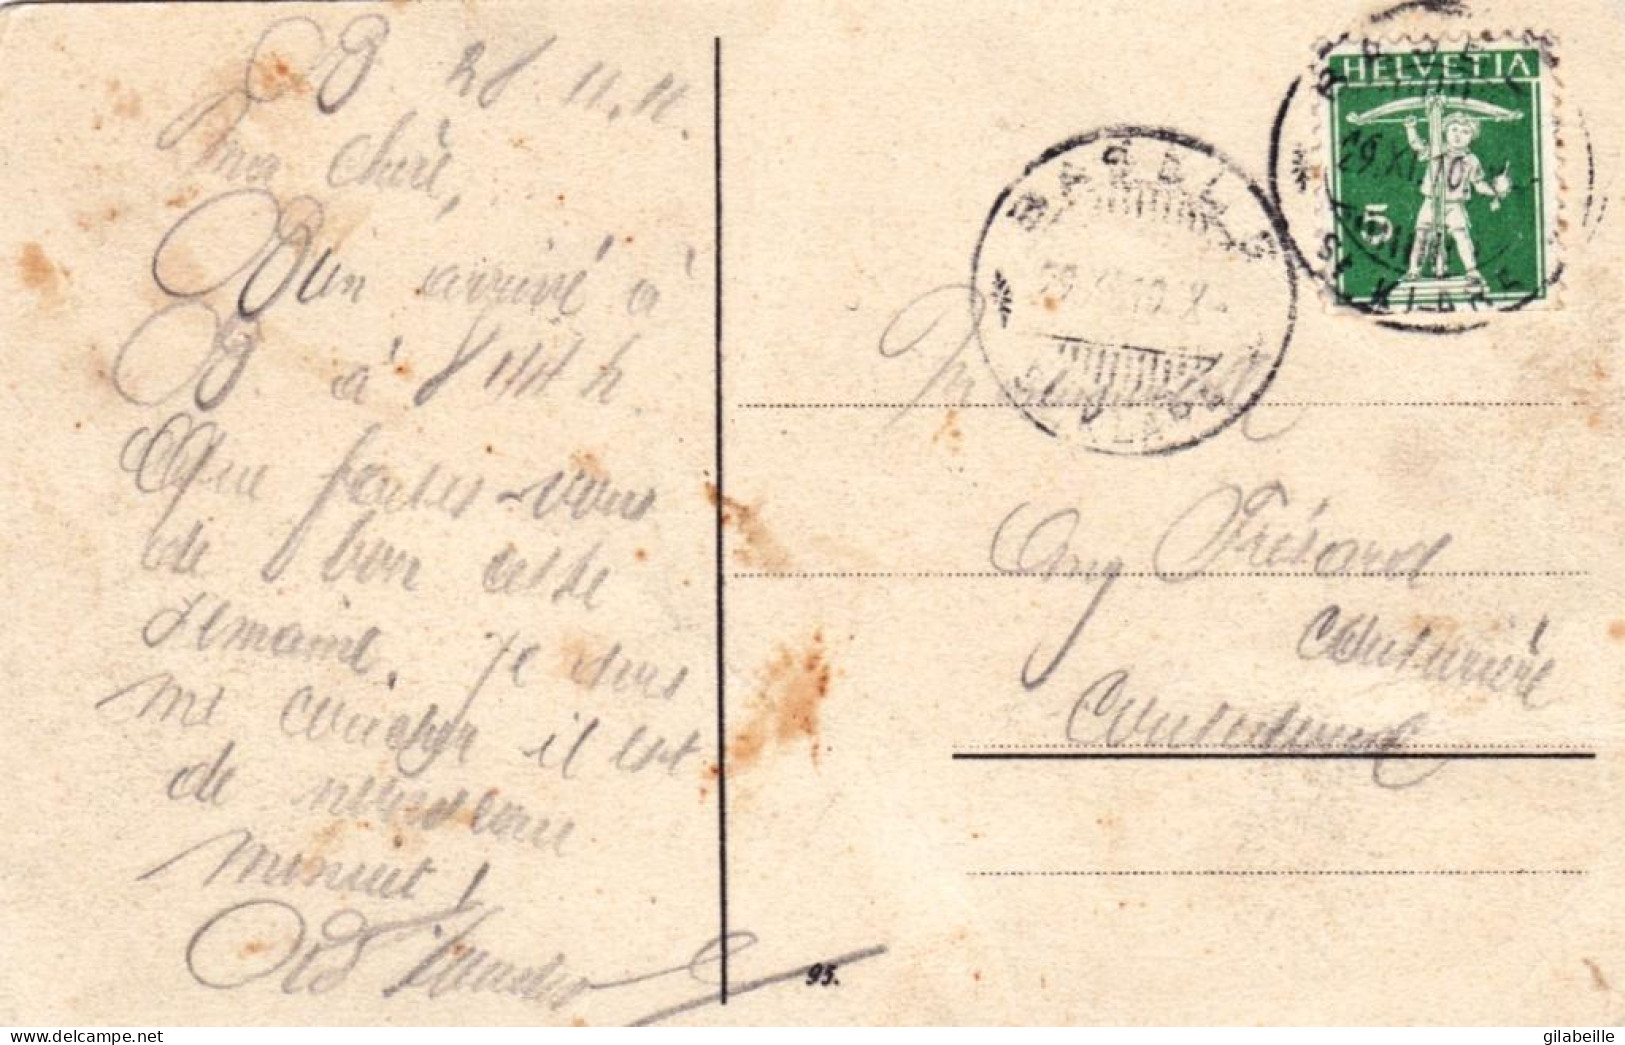 B. 28.11.11.
ma chère,
Bien arrivé à
B. à 8 h.
Que faites-vous
de bon cette
semaine. Je vais
me coucher il est
de nouveau
minuit!
HELVETIA
5
BASEL
29.XI.10.X-
ST. KLARA
BASEL 9
29.XI.10.X-
KLARA
Frésard
couturière
95.
www.delcampe.net
gilabeille